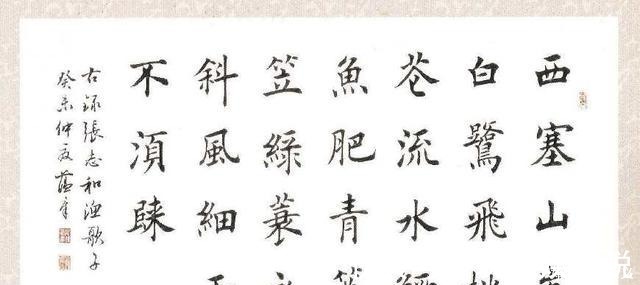 西塞山
白鷺飛
花流水
魚肥青
笠綠蓑
斜風細
不須歸
右錄張志和漁歌子
癸未仲夏